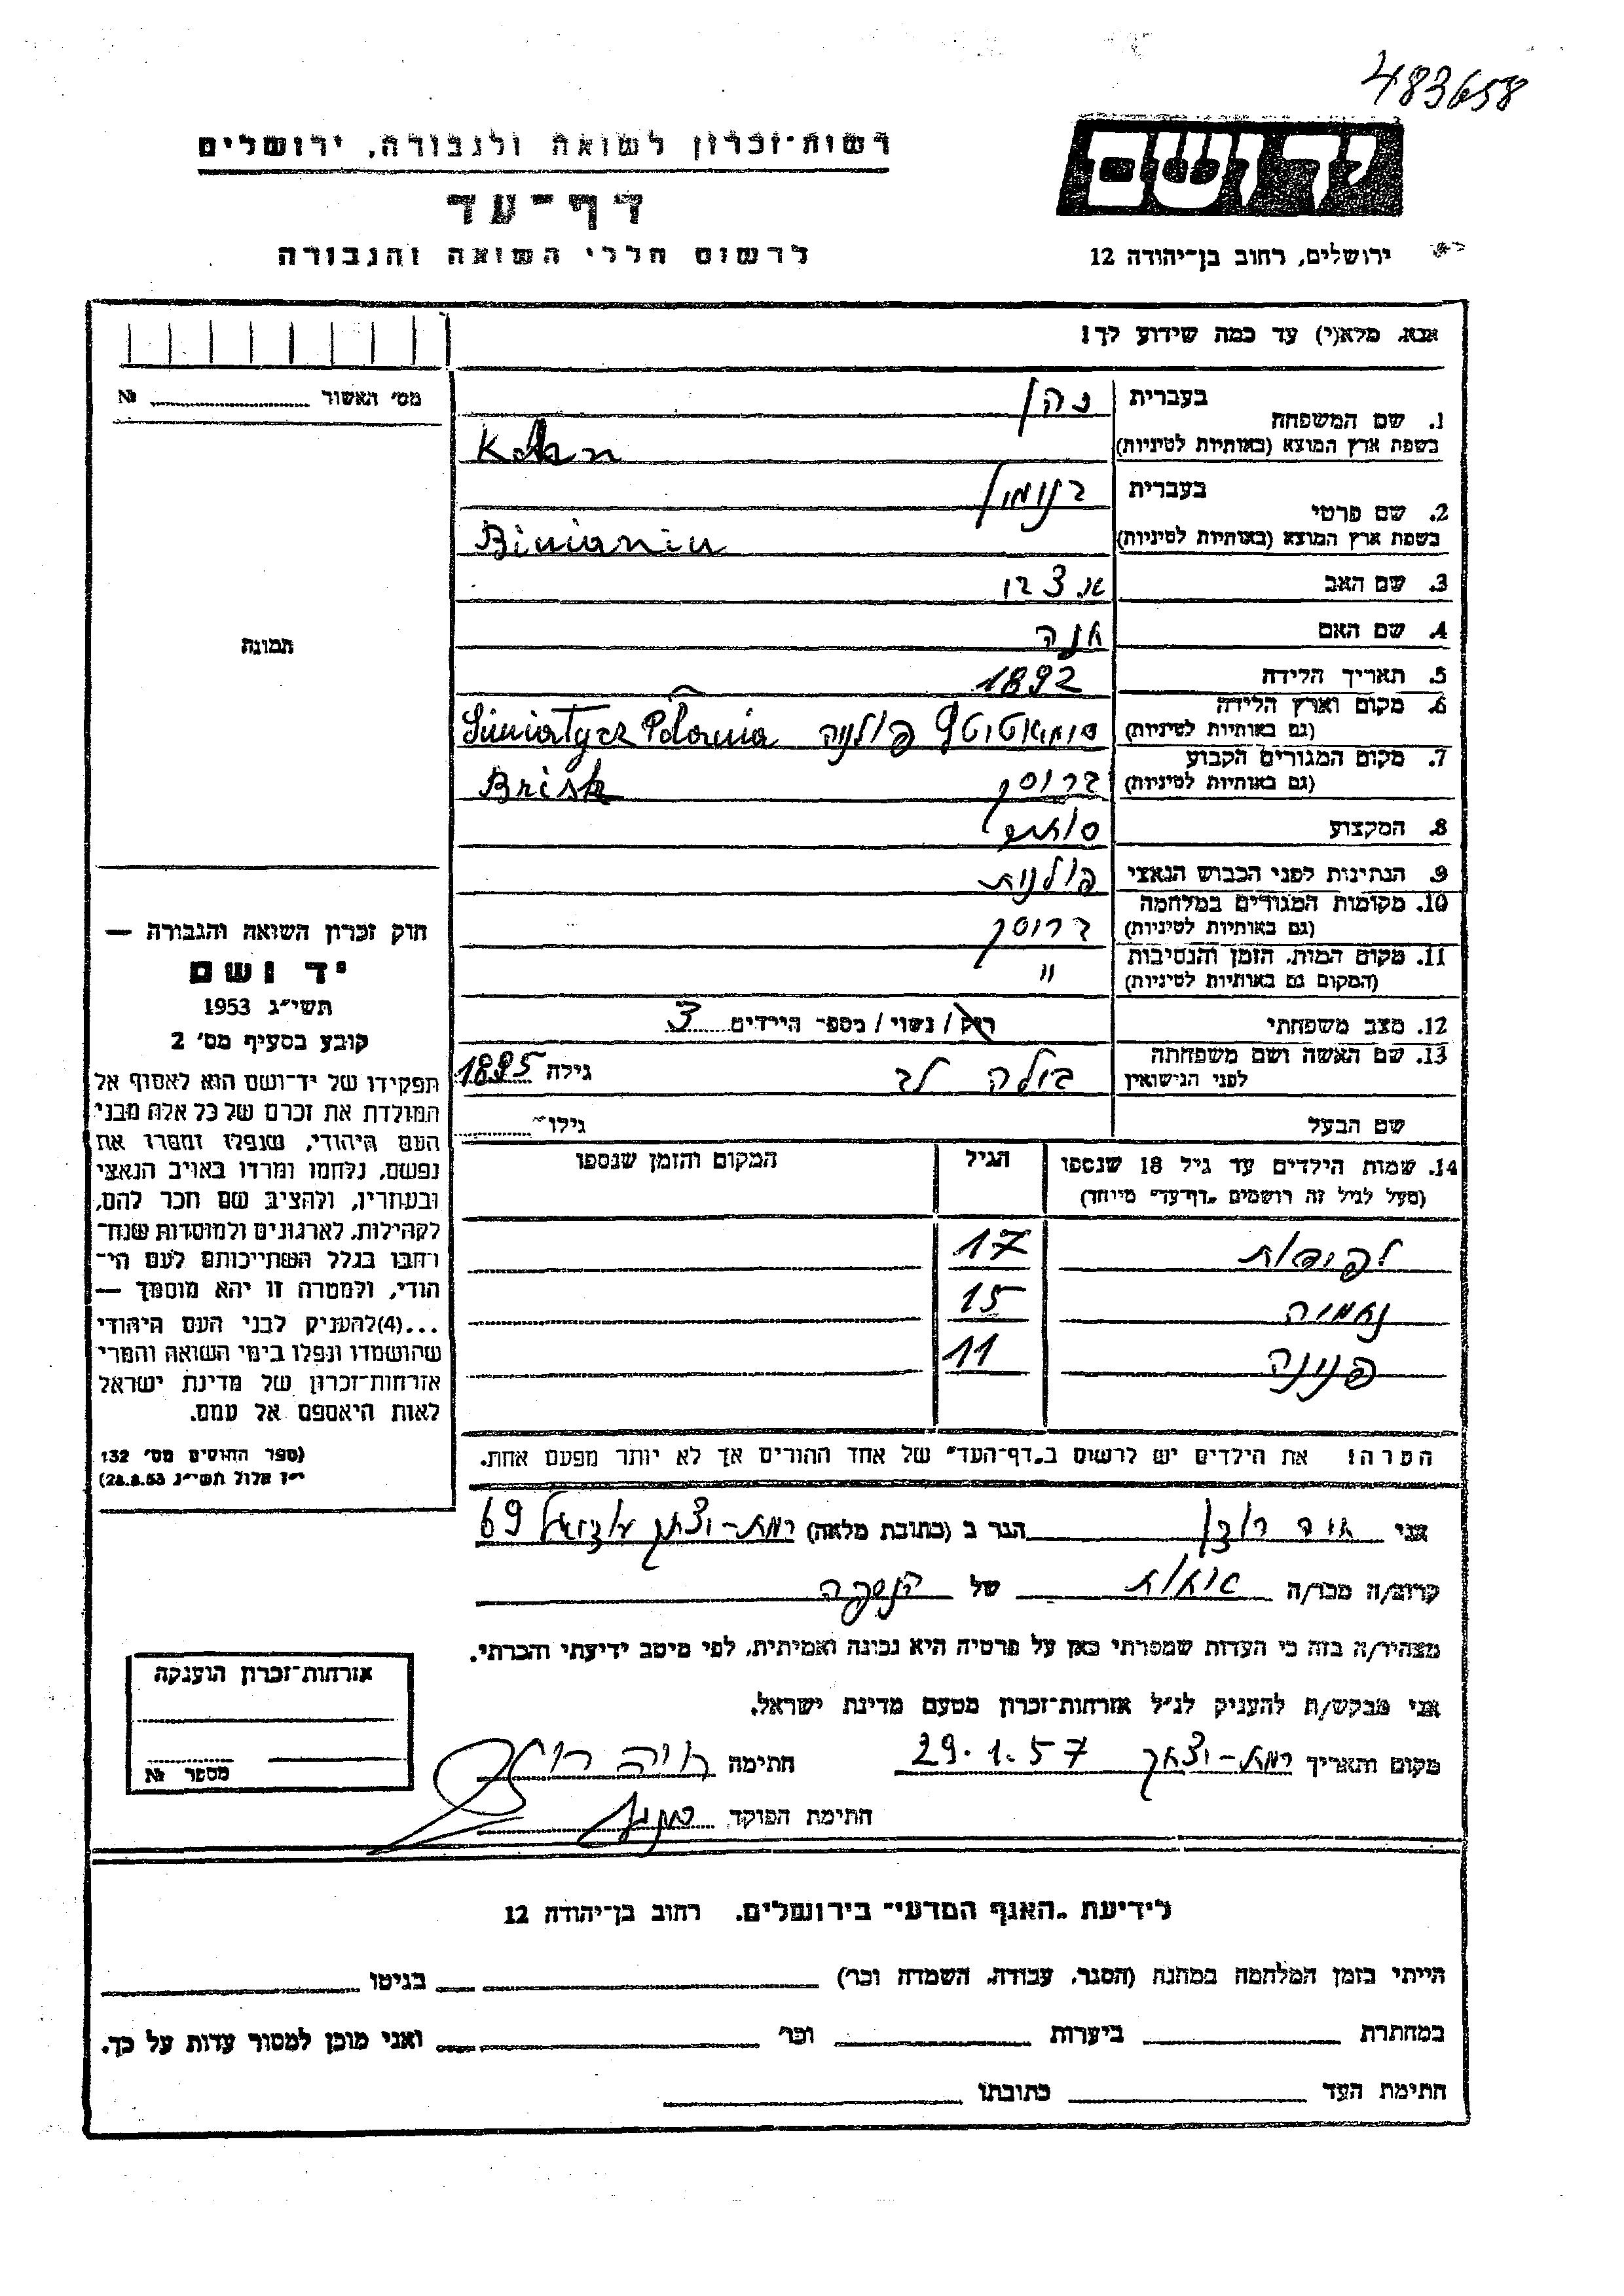 483658
רשות־זכרון לשואה ולגבורה, ירושלים
דף־עד
לרשום חללי השואה והגבורה
יד ושם
ירושלים, רחוב בן־יהודה 12
אנא, מלא(י) עד כמה שידוע לך!
מס' האשור № 
1. שם המשפחה בעברית כהן
בשפת ארץ המוצא (באותיות לטיניות) Kohn
2. שם פרטי בעברית בנימין
בשפת ארץ המוצא (באותיות לטיניות) Biniamin
3. שם האב
4. שם האם חנה
5. תאריך הלידה 1892
6. מקום וארץ הלידה (גם באותיות לטיניות) פולניה Simiatycz Polania
7. מקום המגורים הקבוע (גם באותיות לטיניות) בריסק Brisk
8. המקצוע סוחר
9. הנתינות לפני הכבוש הנאצי פולנית
10. מקומות המגורים במלחמה (גם באותיות לטיניות) בריסק
11. מקום המות, הזמן והנסיבות (המקום גם באותיות לטיניות) "
12. מצב משפחתי רוק/ נשוי/ מספר הילדים 3
13. שם האשה ושם משפחתה לפני הנישואין ביילה לב גילה 1895
שם הבעל גילו
תמונה
חוק זכרון השואה והגבורה —
יד ושם
תשי״ג 1953
קובע בסעיף מס' 2
תפקידו של יד־ושם הוא לאסוף אל
המולדת את זכרם של כל אלה מבני
העם היהודי, שנפלו ומסרו את
נפשם, נלחמו ומרדו באויב הנאצי
ובעוזריו, ולהציב שם וזכר להם,
לקהילות, לארגונים ולמוסדות שנח־
רבו בגלל השתייכותם לעם הי־
הודי, ולמטרה זו יהא מוסמך —
...(4) להעניק לבני העם היהודי
שהושמדו ונפלו בימי השואה והמרי
אזרחות־זכרון של מדינת ישראל
לאות היאספם אל עמם.
(ספר החוקים מס' 132
י״ז אלול תשי״ג 28.8.53)
14. שמות הילדים עד גיל 18 שנספו הגיל המקום והזמן שנספו
(מעל לגיל זה רושמים „דף־עד" מיוחד)
לפידות 17
נחמיה 15
פנינה 11
הערה: את הילדים יש לרשום ב„דף־העד" של אחד ההורים אך לא יותר מפעם אחת.
אני הגר ב (כתובת מלאה) רמת-יצחק עוזיאל 69
קרוב/ה מכר/ה אחות של הנספה
מצהיר/ה בזה כי העדות שמסרתי כאן על פרטיה היא נכונה ואמיתית, לפי מיטב ידיעתי והכרתי.
אני מבקש/ת להעניק לנ״ל אזרחות־זכרון מטעם מדינת ישראל.
מקום ותאריך רמת-יצחק 29.1.57 חתימה
חתימת הפוקד
אזרחות־זכרון הוענקה
מספר №
לידיעת „האגף המדעי" בירושלים, רחוב בן־יהודה 12
הייתי בזמן המלחמה במחנה (הסגר, עבודה, השמדה וכר') בגיטו
במחתרת ביערות וכר' ואני מוכן למסור עדות על כך.
חתימת העד כתובתו